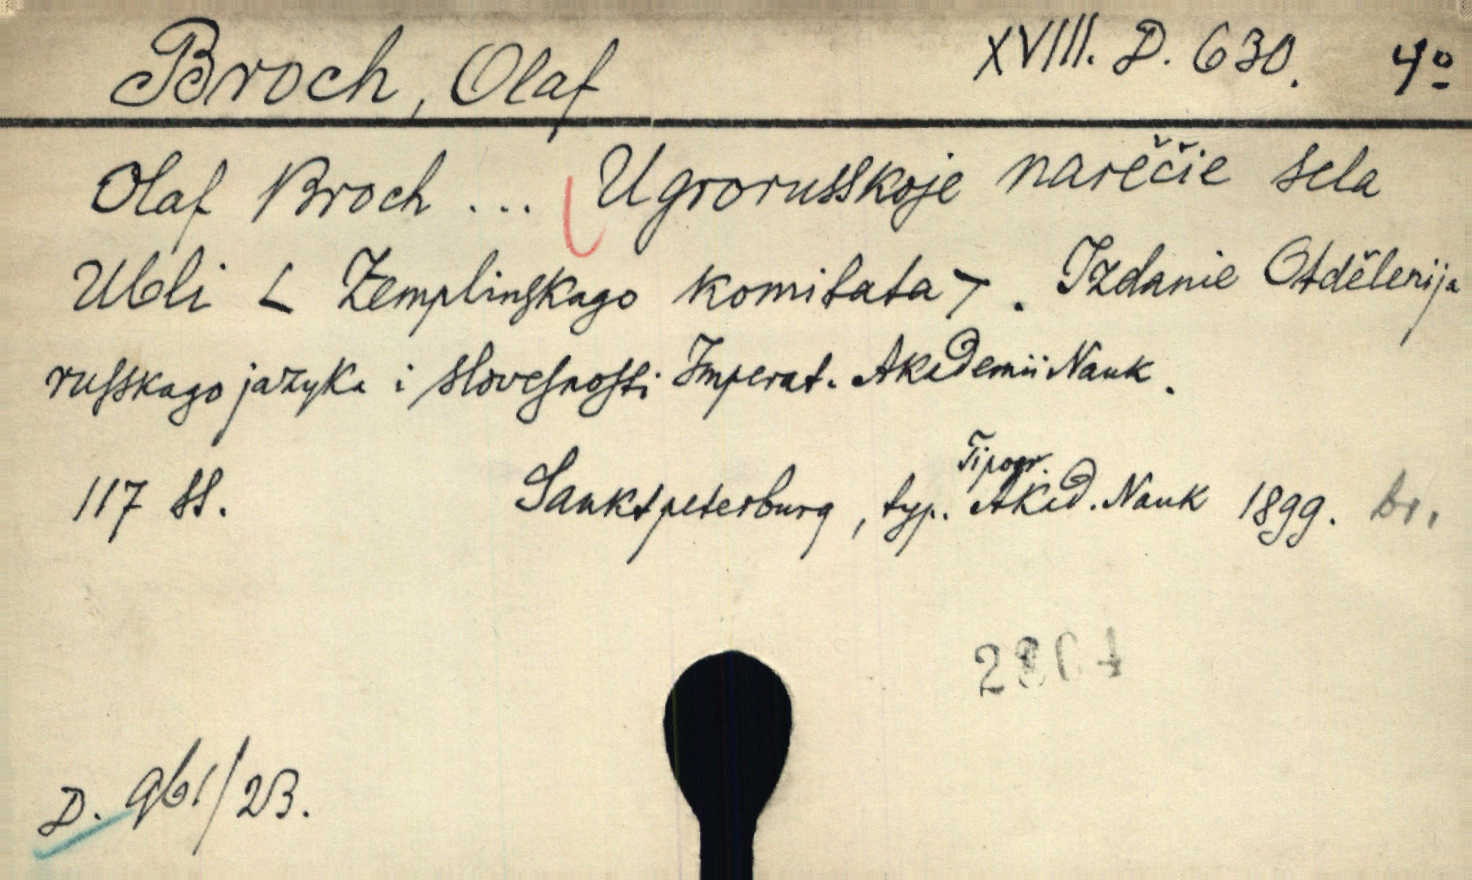 Broch, Olaf XVIII. D. 630. 4º
Olaf Broch ... Ugrorusskoje narěčie sela
Ubli < Zemplinskago komitata >. Izdanie Otdělenija
russkago jazyka i slovesnosti Imperat. Akademii Nauk.
Tipogr.
117 ss. Sanktpeterburg, typ. Akad. Nauk 1899. br.
2804
D. 961/23.